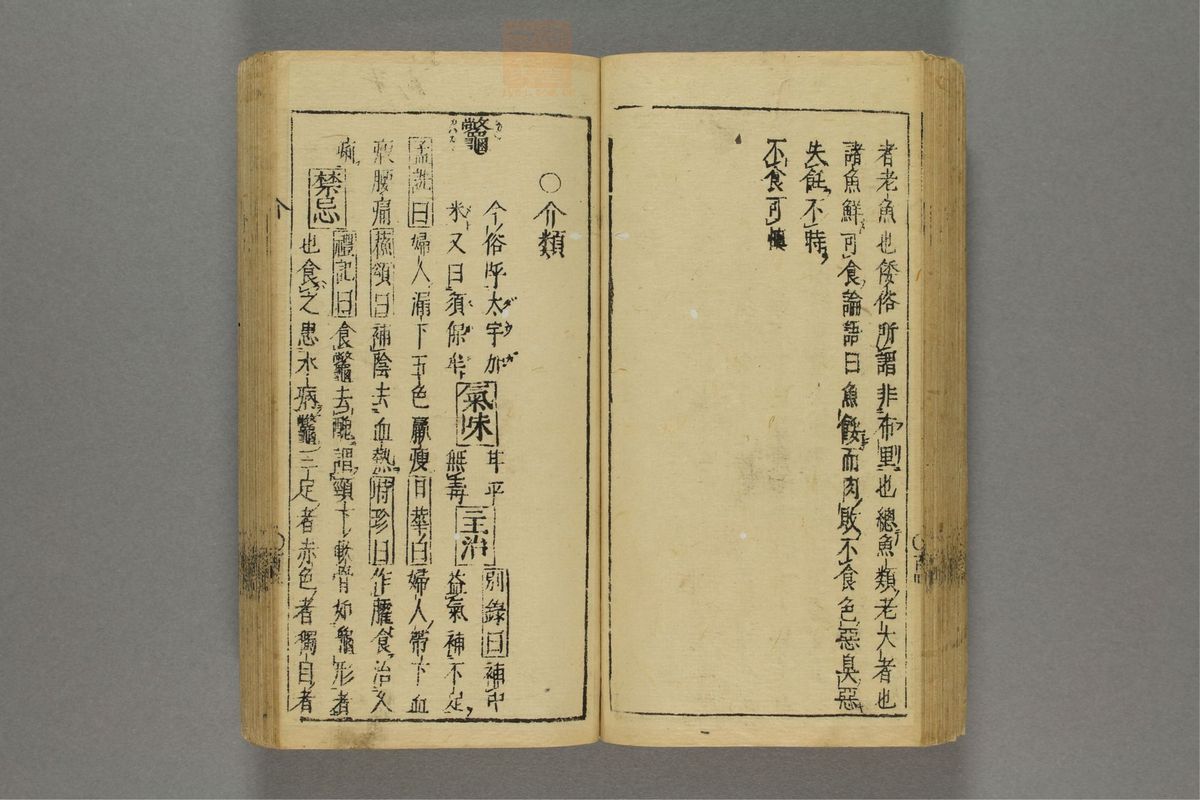 者老魚也倭俗所謂非布里也總魚類老大者也
諸魚鮮可食論語曰魚餒而肉敗不食色惡臭惡
失飪不時
不食可愼
○介類
鼈
今俗呼太宇加
米又曰須保牟
氣味
甘平
無毒
主治
別錄曰補中
益氣補不足
孟詵曰婦人漏下五色羸瘦日華曰婦人帶下血
瘕腰痛蘇頌曰補陰去血熱時珍曰作臛食治久
痢
禁忌
禮記曰食鼈去醜謂頸下軟骨如龜形者
也食之患水病鼈三足者赤色者獨目者